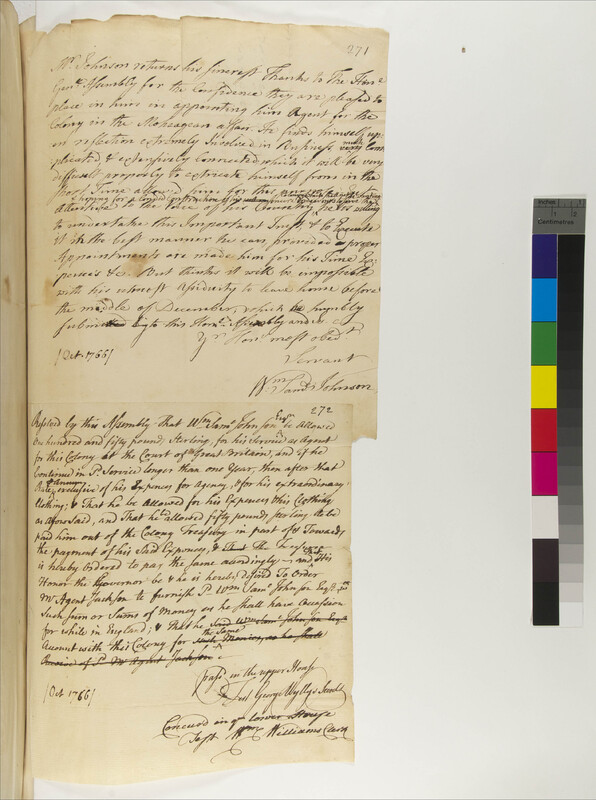 271
Mr. Johnson returns his sincerest Thanks to The Honle
Genl. Assembly for the Confidence they are pleased to
place in him in appointing him Agent for the
Colony in the Moheagean affair. He finds himself up-
on reflection extremely Involved in Business very much Com
plicated & extensively Connected which it will be very
difficult properly to extricate himself from in the
short Time allowed him for this
hoping for a
attendance to the Voice of his Country he is willing
to undertake this Important Trust, & to Execute
it in the best manner he can, provided a proper
Appointments are made him for his Time Ex
pences &c. But thinks it will be impossible
with his utmost Assiduity to leave home before
the middle of December, which is humbly
submitted by to this Honle. Assembly and is
Yr Honrs. most obedt
Servant
[Oct. 1766]
Wm. Saml. Johnson
272
Resolved by this Assembly That Wm Saml. Johnson Esqr. be Allowed
One hundred and fifty pound, Sterling, for his Service as Agent
for this Colony at the Court of Great Britain, and if he
Continued in Pd Service longer than one Year, then after that
Rate, & Annum exclusive of his Expences for Agency, & for his extraordinary
Clothing; & That he be Allowed for his Expences & his Clothing
as aforesaid, and That he be allowed fifty pounds sterling to be
paid him out of the Colony Treasury in part of & Towards
the payment of his Said Expences, & That The Treasurer
is hereby Ordered to pay the Same accordingly — and That His
Honor the Governor be & he is hereby desired To Order
Mr Agent Jackson to furnish Pd Wm Saml Johnson Esqr. with
Such sum or Sums of Money as he shall have Occasion
for while in England; & That he Said Wm Saml Johnson Esqr
Account with this Colony for the Same such Monies, as he shall
Receive of Pd Mr Agent Jackson
Passd in the upper House
Test George Wyllys Secrety
[Oct 1766]
Concurd in ye lower House
Test Wm Williams Clerk
inches 1 2
Centimetres